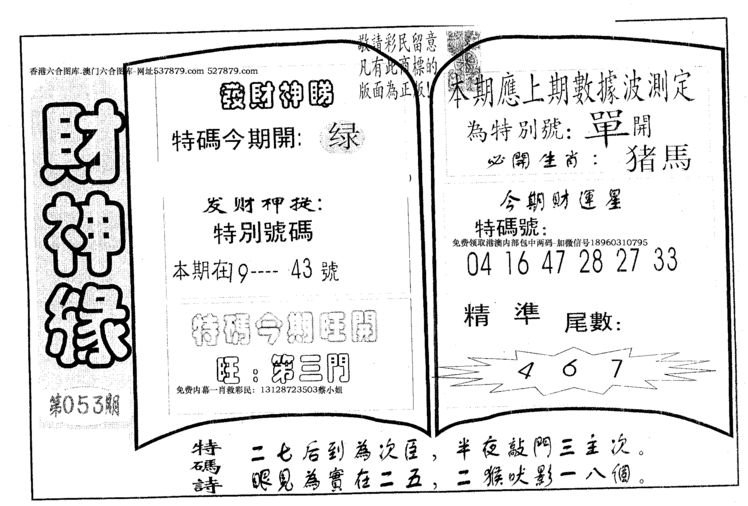 敬請彩民留意
凡有此商標的
版面為正版!
香港六合图库.澳门六合图库 网址537879.com 527879.com
財神緣
第053期
發財神睇
特碼今期開: 绿
发财神挺:
特別號碼
本期在19----43號
特碼今期旺開
旺:第三門
免费内幕一肖救彩民: 13128723503蔡小姐
本期應上期數據波測定
為特別號: 單開
必開生肖: 猪馬
今期財運星
特碼號:
免费领取港澳内部包中两码-加微信号18960310795
04 16 47 28 27 33
精準 尾數:
4 6 7
特碼詩
二七后到為次臣,半夜敲門三主次。
眼見為實在二五,二猴吠影一八個。